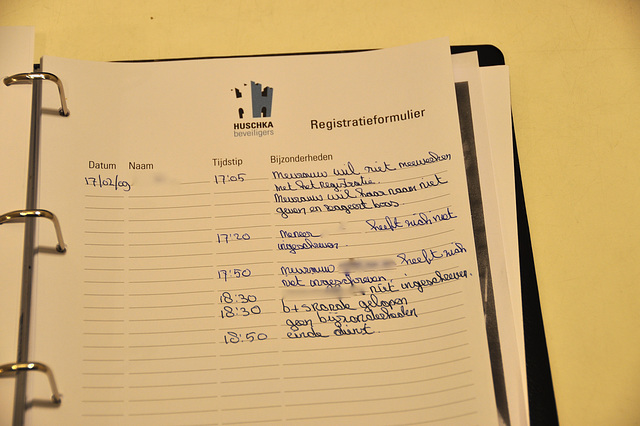 HUSCHKA
beveiligers
Registratieformulier
Datum Naam Tijdstip Bijzonderheden
17/02/09 17:05 Mevrouw wil niet meewerken
met het Registratie.
Mevrouw wil haar naam niet
geven en reageert boos.
17:20 Meneer heeft zich niet
ingeschreven
17:50 Mevrouw heeft zich
niet ingeschreven.
18:30 niet ingeschreven.
18:30 b+s Ronde gelopen
geen bijzonderheden
18:50 einde dienst.